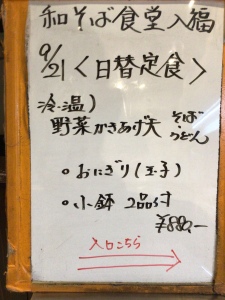 和そば食堂入福
9/21〈日替定食〉
冷・温)
野菜かきあげ天 そば・うどん
・おにぎり(玉子)
・小鉢 2品付
¥880-
入口こちら